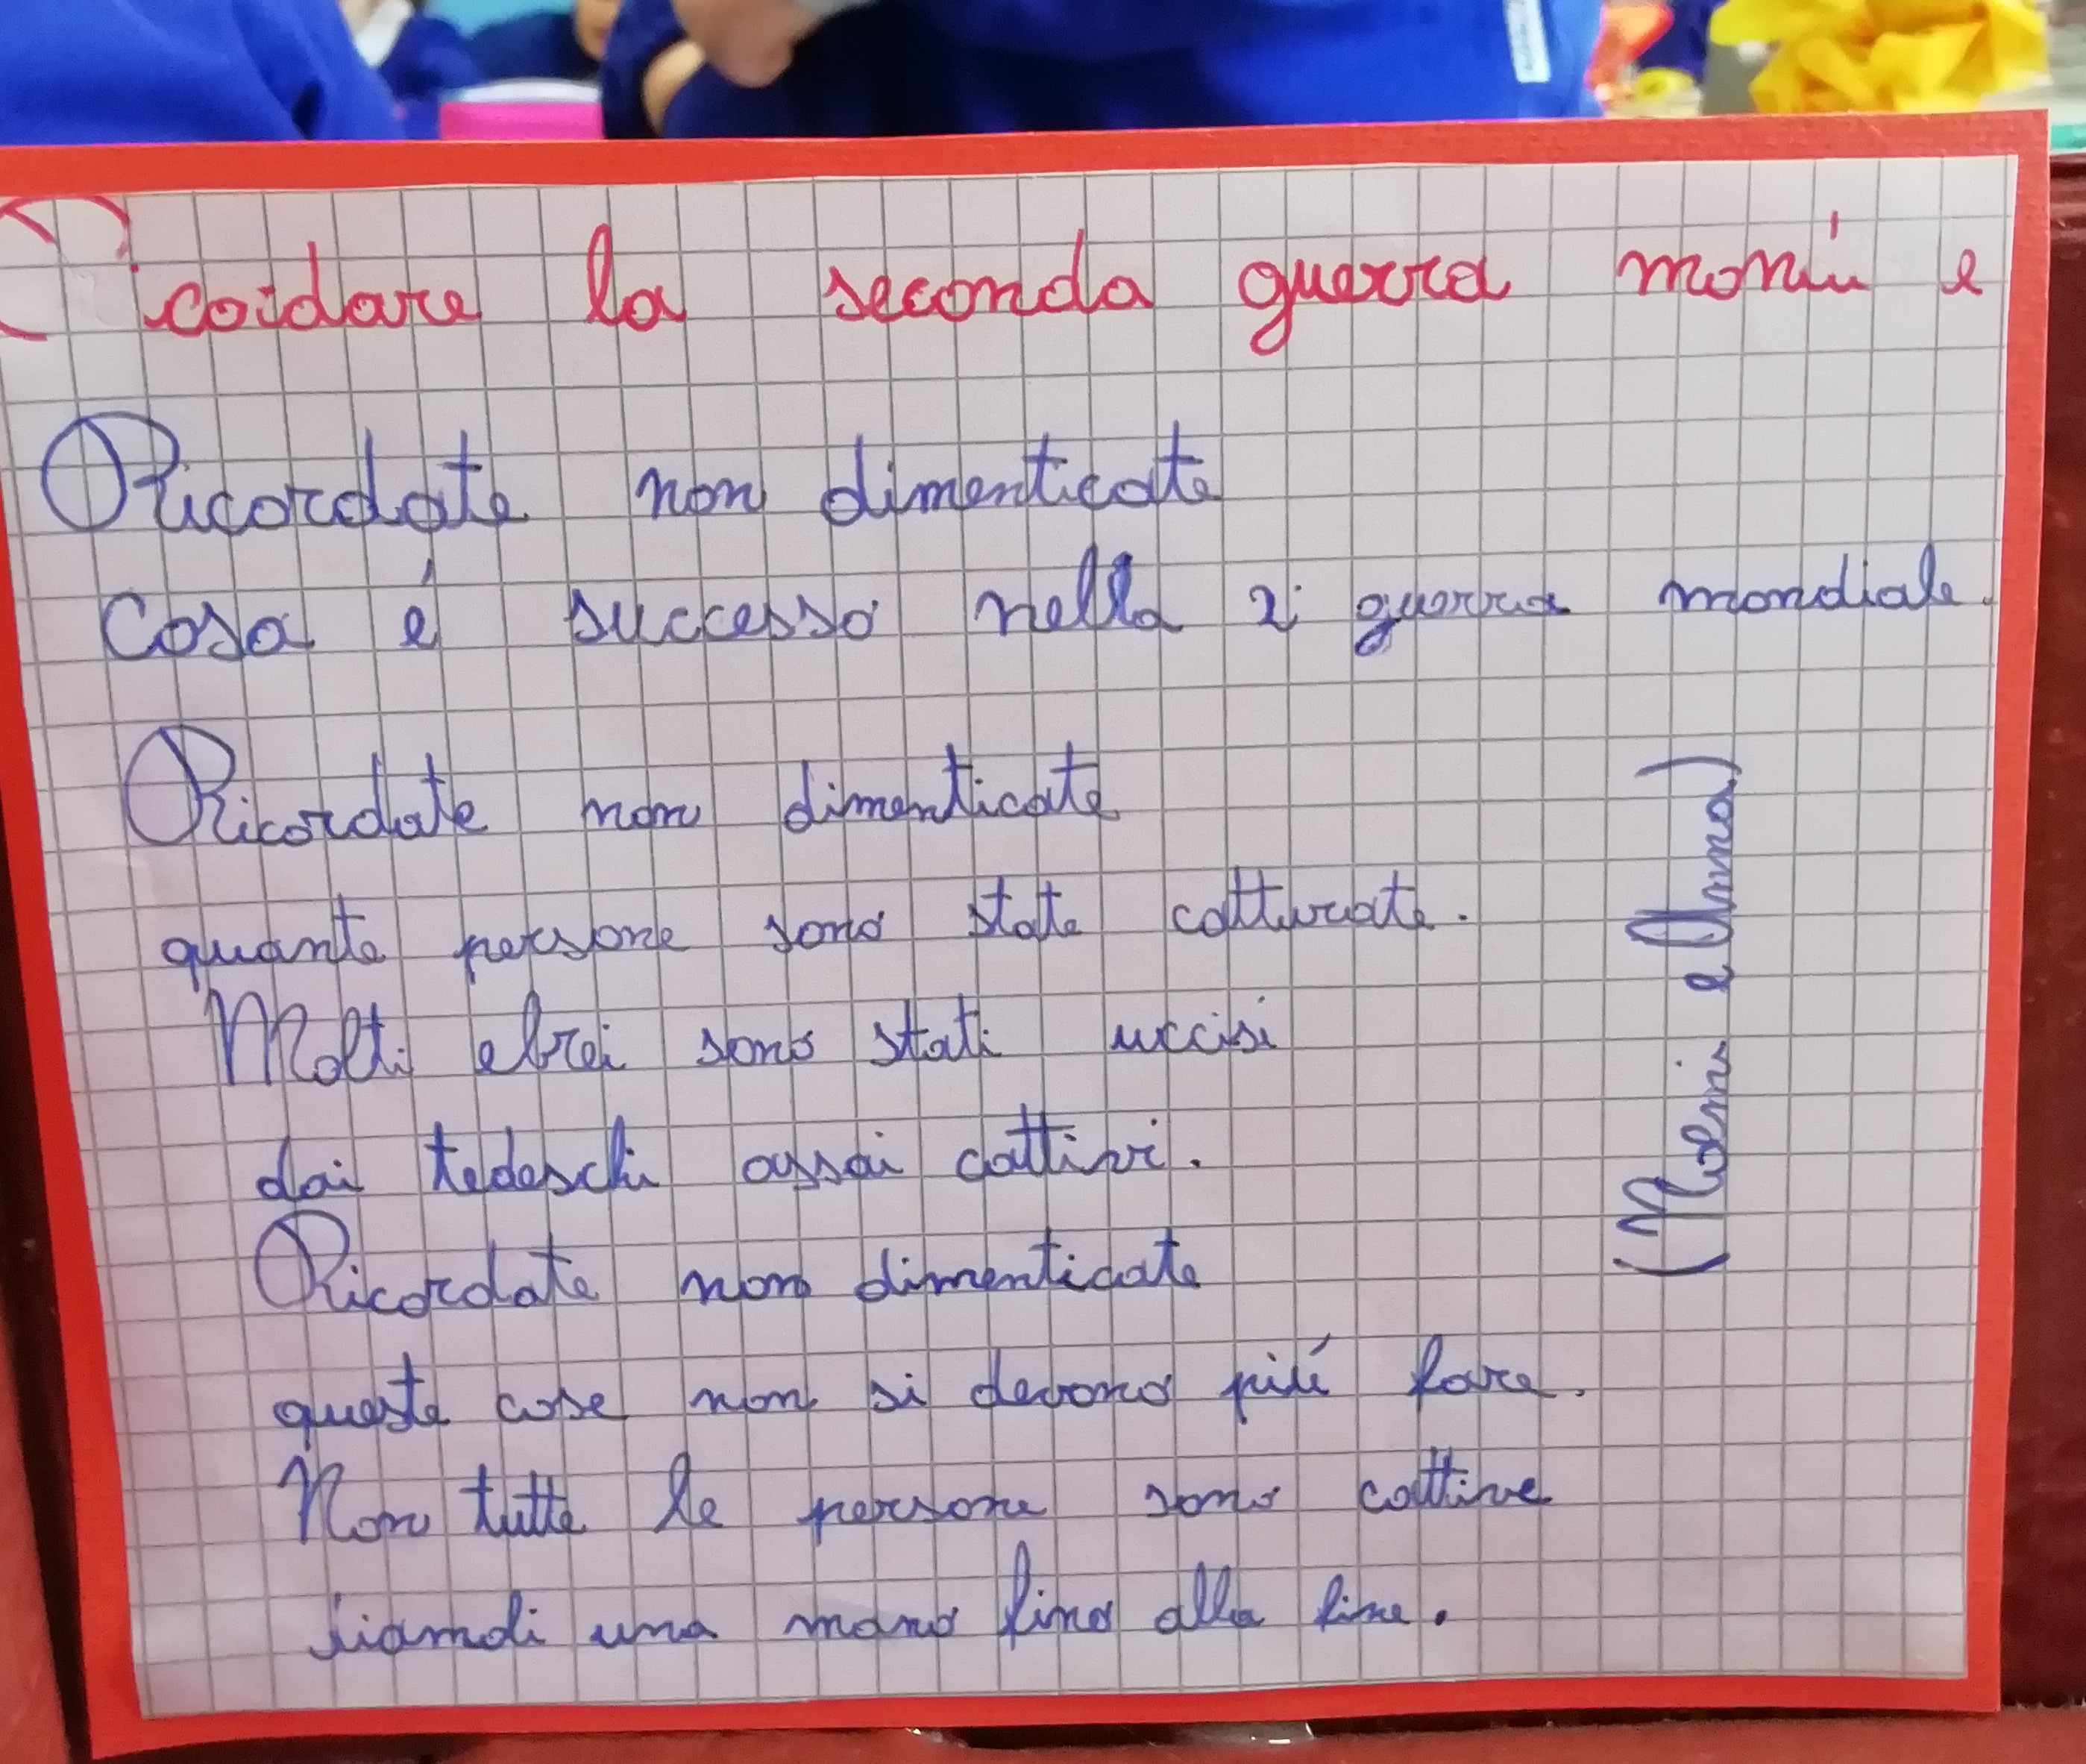 Ricordare la seconda guerra
Ricordate non dimenticate
Cosa é successo nella 2ª guerra mondiale.
Ricordate non dimenticate
quante persone sono state catturate.
Molti ebrei sono stati uccisi
dai tedeschi assai cattivi.
Ricordate non dimenticate
queste cose non si devono piú fare.
Non tutte le persone sono cattive
una mano fino alla fine.
e Anna)